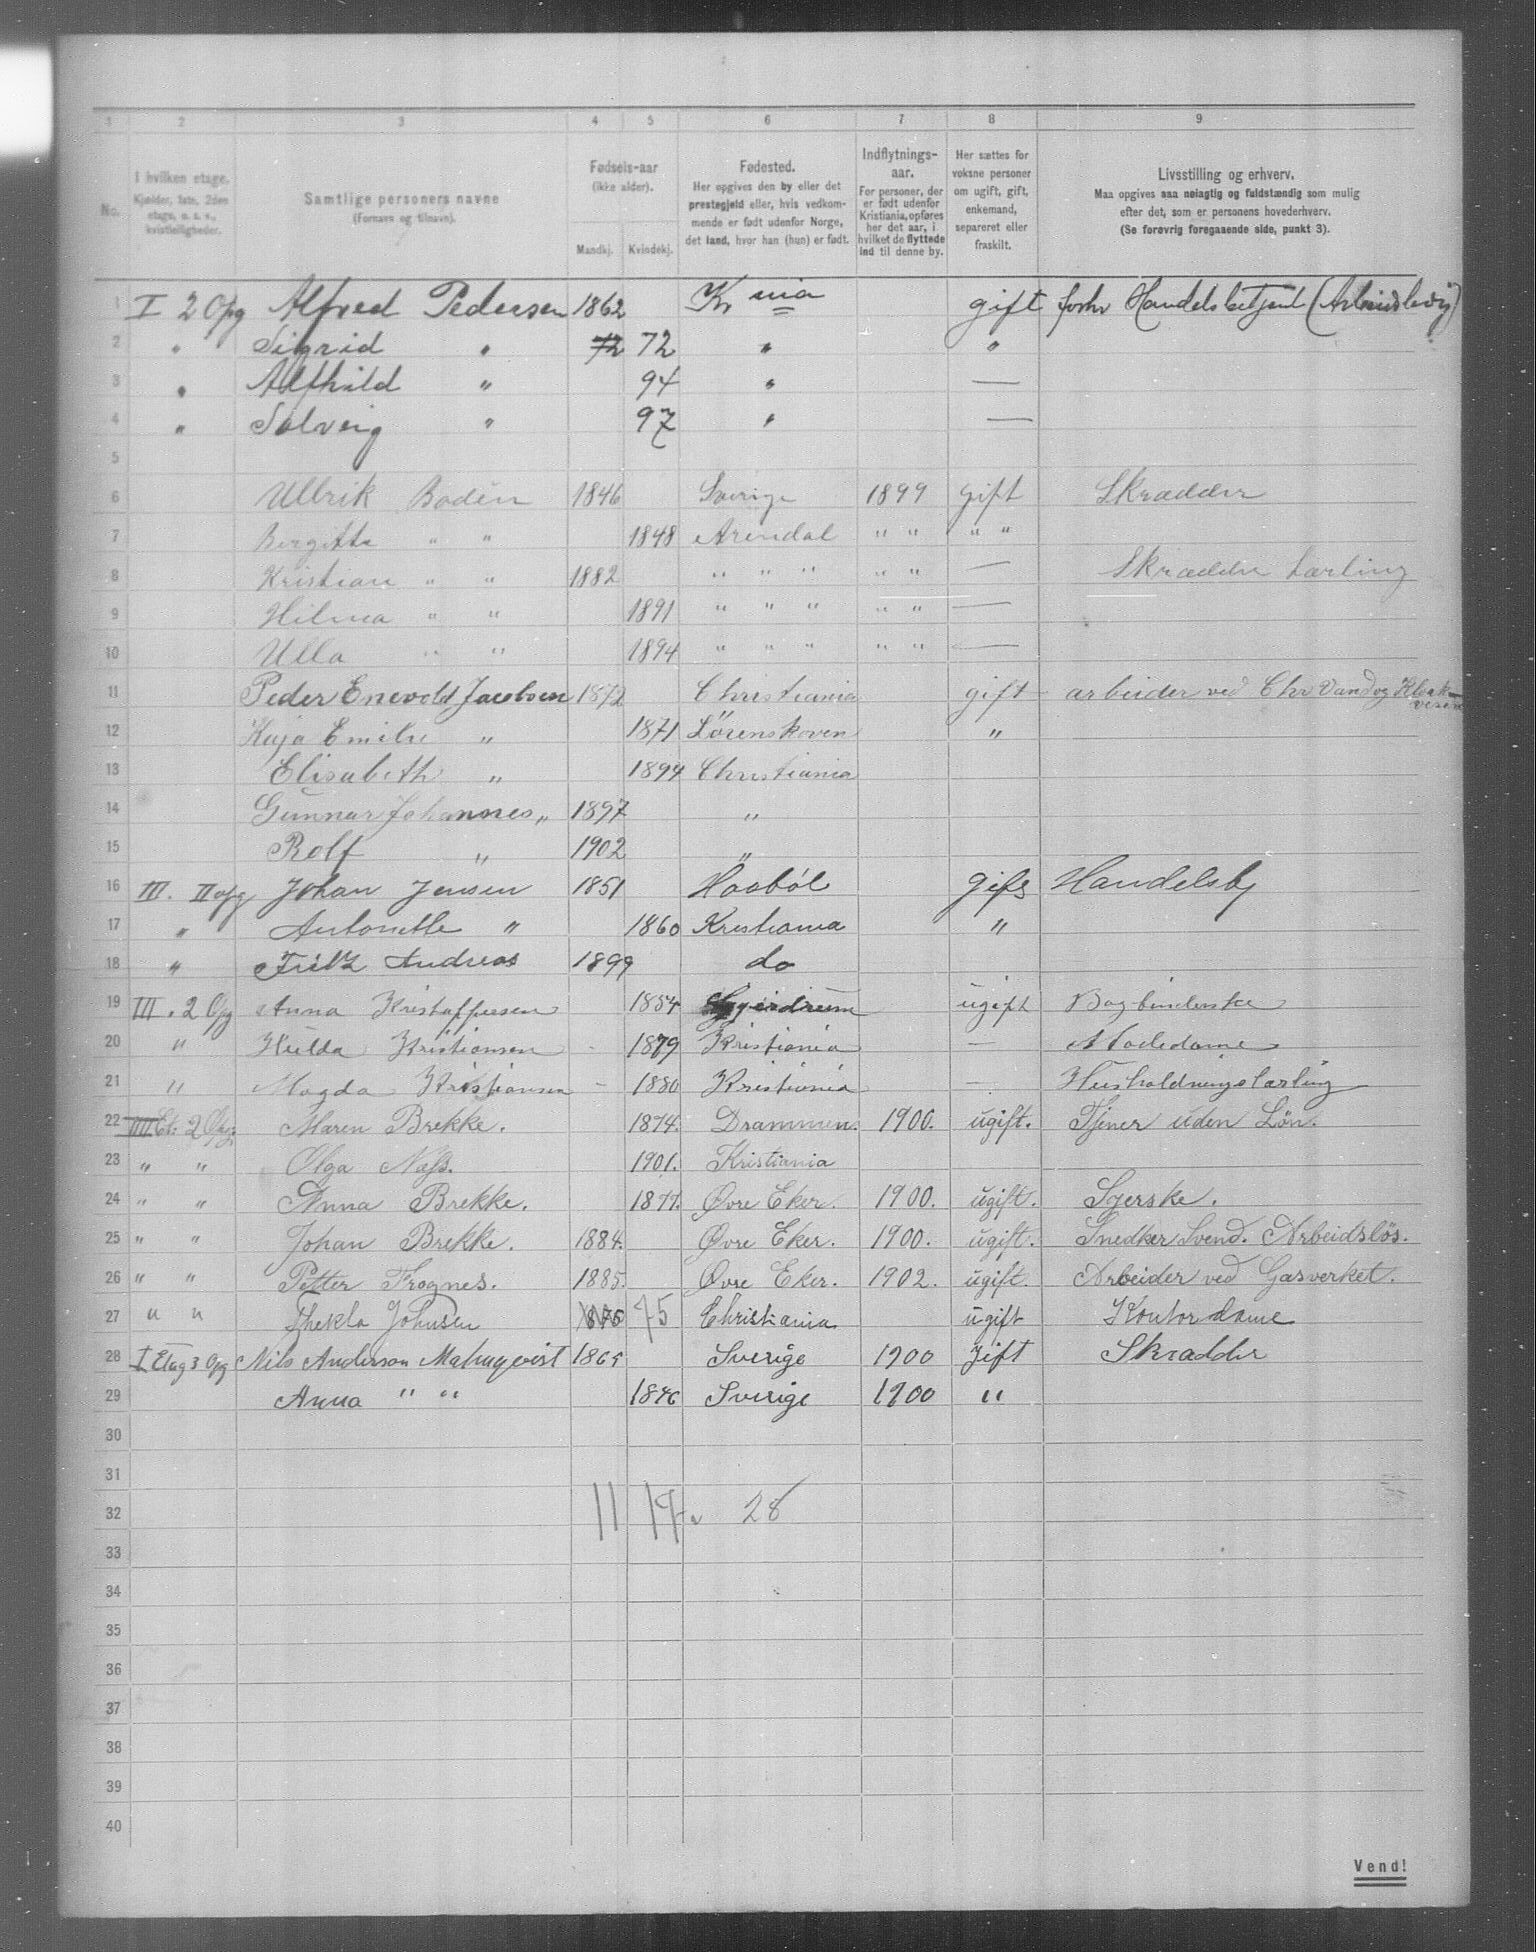 1 2 3 4 5 6 7 8 9
No.
I hvilken etage. Kjælder, 1ste, 2den etage, o. s. v., kvistleiligheder.
Samtlige personers navne (Fornavn og tilnavn).
Fødsels-aar (ikke alder). Mandkj. Kvindekj.
Fødested. Her opgives den by eller det prestegjeld eller, hvis vedkommende er født udenfor Norge, det land, hvor han (hun) er født.
Indflytnings-aar. For personer, der er født udenfor Kristiania, opføres her det aar, i hvilket de flyttede ind til denne by.
Her sættes for voksne personer om ugift, gift, enkemand, separeret eller fraskilt.
Livsstilling og erhverv. Maa opgives saa nøiagtig og fuldstændig som mulig efter det, som er personens hovederhverv. (Se forøvrig foregaaende side, punkt 3).
1 I 2 Opg Alfred Pedersen 1862 Kr nia gift forhv Handelsbetjent (Arbeidsledig)
2 " Sigrid " 72 72 " "
3 " Alfhild " 94 " —
4 " Solveig " 97 " —
5
6 Ullrik Bodin 1846 Sverige 1899 gift Skrædder
7 Bergitte " " 1848 Arendal " " " "
8 Kristian " " 1882 " " " " " — Skrædder Lærling
9 Hilma " " 1891 " " " " " —
10 Ulla " " 1894 " " " " " —
11 Peder Enevold Jacobsen 1872 Christiania gift arbeider ved Chr Vand og Kloakvesen
12 Kaja Emilie " 1871 Lørenskoven "
13 Elisabeth " 1894 Christiania
14 Gunnar Johannes " 1897 "
15 Rolf " 1902 "
16 III. II opg Johan Jensen 1851 Haabøl gift Handelsbj
17 " Antonette " 1860 Kristiania "
18 " Fritz Andreas 1899 do
19 III. 2 Opg Anna Kristoffersen 1854 ugift Bogbinderske
20 " Hulda Kristiansen - 1879 Kristiania — Modedame
21 " Magda Kristiansen - 1880 Kristiania — Husholdningslærling
22 IIII Et. 2 Opg. Maren Brekke. 1874. Drammen. 1900. ugift. Tjener uden Løn.
23 " " Olga Næss. 1901. Kristiania
24 " " Anna Brekke. 1877. Øvre Eker. 1900. ugift. Syerske.
25 " " Johan Brekke. 1884. Øvre Eker. 1900. ugift. Snedker Svend. Arbeidsløs.
26 " " Petter Frognes. 1885. Øvre Eker. 1902. ugift. Arbeider ved Gasverket.
27 " " Thekla Johnsen 1875 75 Christiania ugift Kontordame
28 I Etag 3 Opg Nils Anderson Malmqvist 1865 Sverige 1900 gift Skrædder
29 Anna " " 1846 Sverige 1900 "
30
31
32 11 17 28
33
34
35
36
37
38
39
40
Vend!